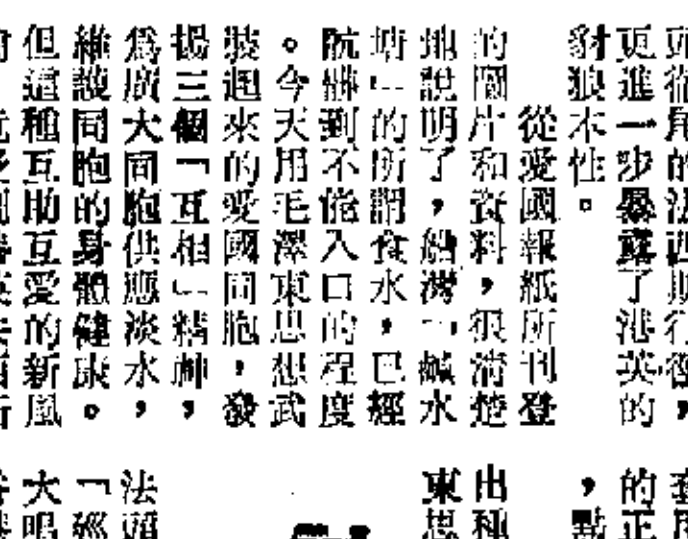 的法西斯行徑，
更進一步暴露了港英的
豺狼本性。
從愛國報紙所刊登
的圖片和資料，很清楚
地說明了，船灣「鹹水
塘」的所謂食水，已經
骯髒到不能入口的程度
。今天用毛澤東思想武
裝起來的愛國同胞，發
揚三個「互相」精神，
爲廣大同胞供應淡水，
維護同胞的身體健康。
但這種互助互愛的新風
的正
，點
出種
東思
法頭
「巡
大眼